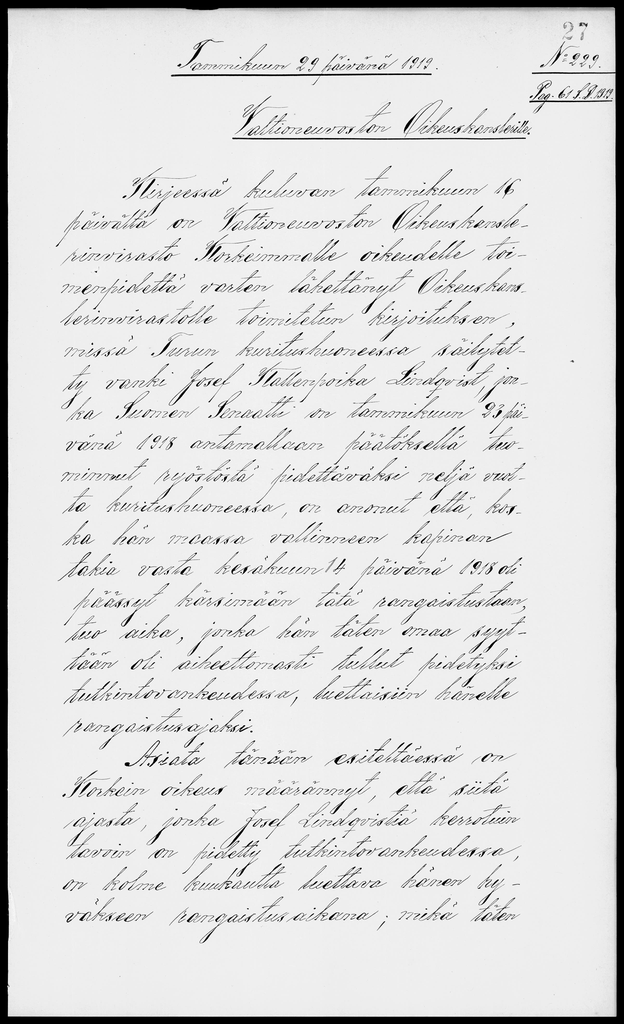 27
Tammikuun 29 päivänä 1919.
No 229.
Pag. 61 S.D. 1919.
Valtioneuvoston Oikeuskanslerille.
Kirjeessä kuluvan tammikuun 16
päivältä on Valtioneuvoston Oikeuskansle-
rinvirasto Korkeimmalle oikeudelle toi-
menpidettä varten lähettänyt Oikeuskans-
lerinvirastolle toimitetun kirjoituksen,
missä Turun kuritushuoneessa säilytet-
ty vanki Josef Kallenpoika Lindqvist, jon-
ka Suomen Senaatti on tammikuun 23 päi-
vänä 1918 antamallaan päätöksellä tuo-
minnut ryöstöstä pidettäväksi neljä vuot-
ta kuritushuoneessa, on anonut että, kos-
ka hän maassa vallinneen kapinan
takia vasta kesäkuun 14 päivänä 1918 oli
päässyt kärsimään tätä rangaistustaan,
tuo aika, jonka hän täten omaa syyt-
tään oli aiheettomasti tullut pidetyksi
tutkintovankeudessa, luettaisiin hänelle
rangaistusajaksi.
Asiata tänään esiteltäessä on
Korkein oikeus määrännyt, että siitä
ajasta, jonka Josef Lindqvistiä kerrotuin
tavoin on pidetty tutkintovankeudessa,
on kolme kuukautta luettava hänen hy-
väkseen rangaistusaikana; mikä täten